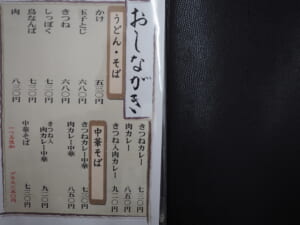 おしながき
うどん・そば
かけ 五三〇円
玉子とじ 六八〇円
きつね 六八〇円
しっぽく 七三〇円
鳥なんば 七三〇円
肉 八三〇円
きつねカレー 七三〇円
肉カレー 八五〇円
きつね入肉カレー 九二〇円
中華そば
きつねカレー中華 七三〇円
肉カレー中華 八五〇円
きつね入肉カレー中華 九二〇円
中華そば 七三〇円